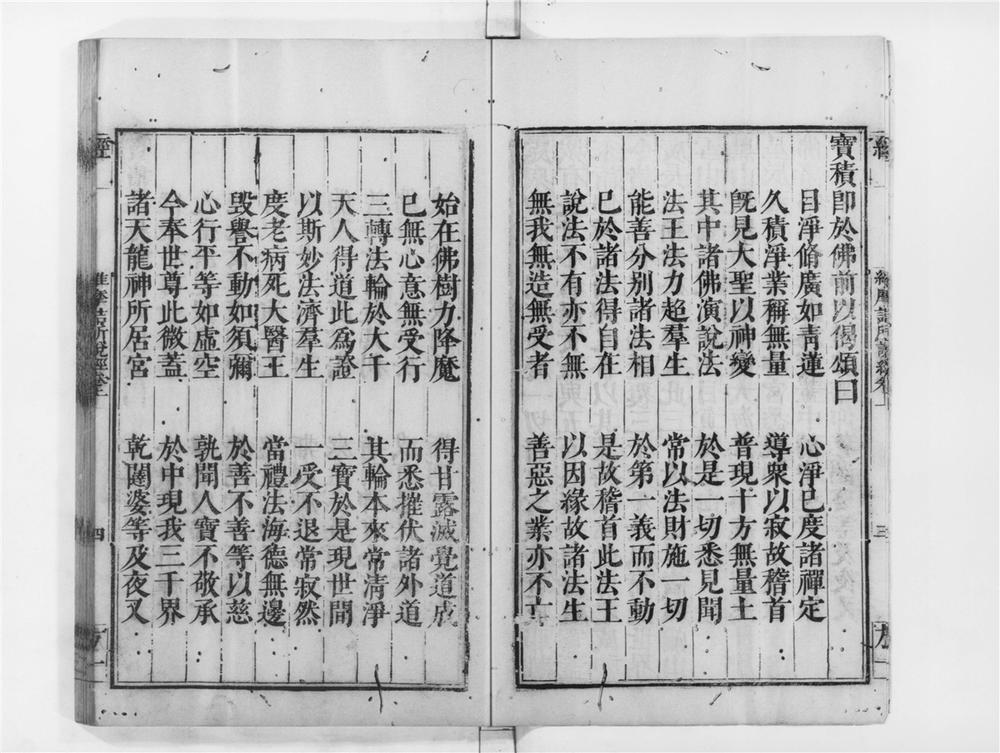 寶積卽於佛前以偈頌曰
目淨脩廣如靑蓮 心淨已度諸禪定
久積淨業稱無量 導衆以寂故稽首
旣見大聖以神變 普現十方無量土
其中諸佛演說法 於是一切悉見聞
法王法力超羣生 常以法財施一切
能善分别諸法相 於第一義而不動
已於諸法得自在 是故稽首此法王
說法不有亦不無 以因緣故諸法生
無我無造無受者 善惡之業亦不亡
始在佛樹力降魔 得甘露滅覺道成
已無心意無受行 而悉摧伏諸外道
三轉法輪於大千 其輪本來常清淨
天人得道此爲證 三寶於是現世間
以斯妙法濟羣生 一受不退常寂然
度老病死大醫王 當禮法海德無邊
毀譽不動如須彌 於善不善等以慈
心行平等如虛空 孰聞人寶不敬承
今奉世尊此微蓋 於中現我三千界
諸天龍神所居宮 乾闥婆等及夜叉
經 維摩詰所說經卷上 四